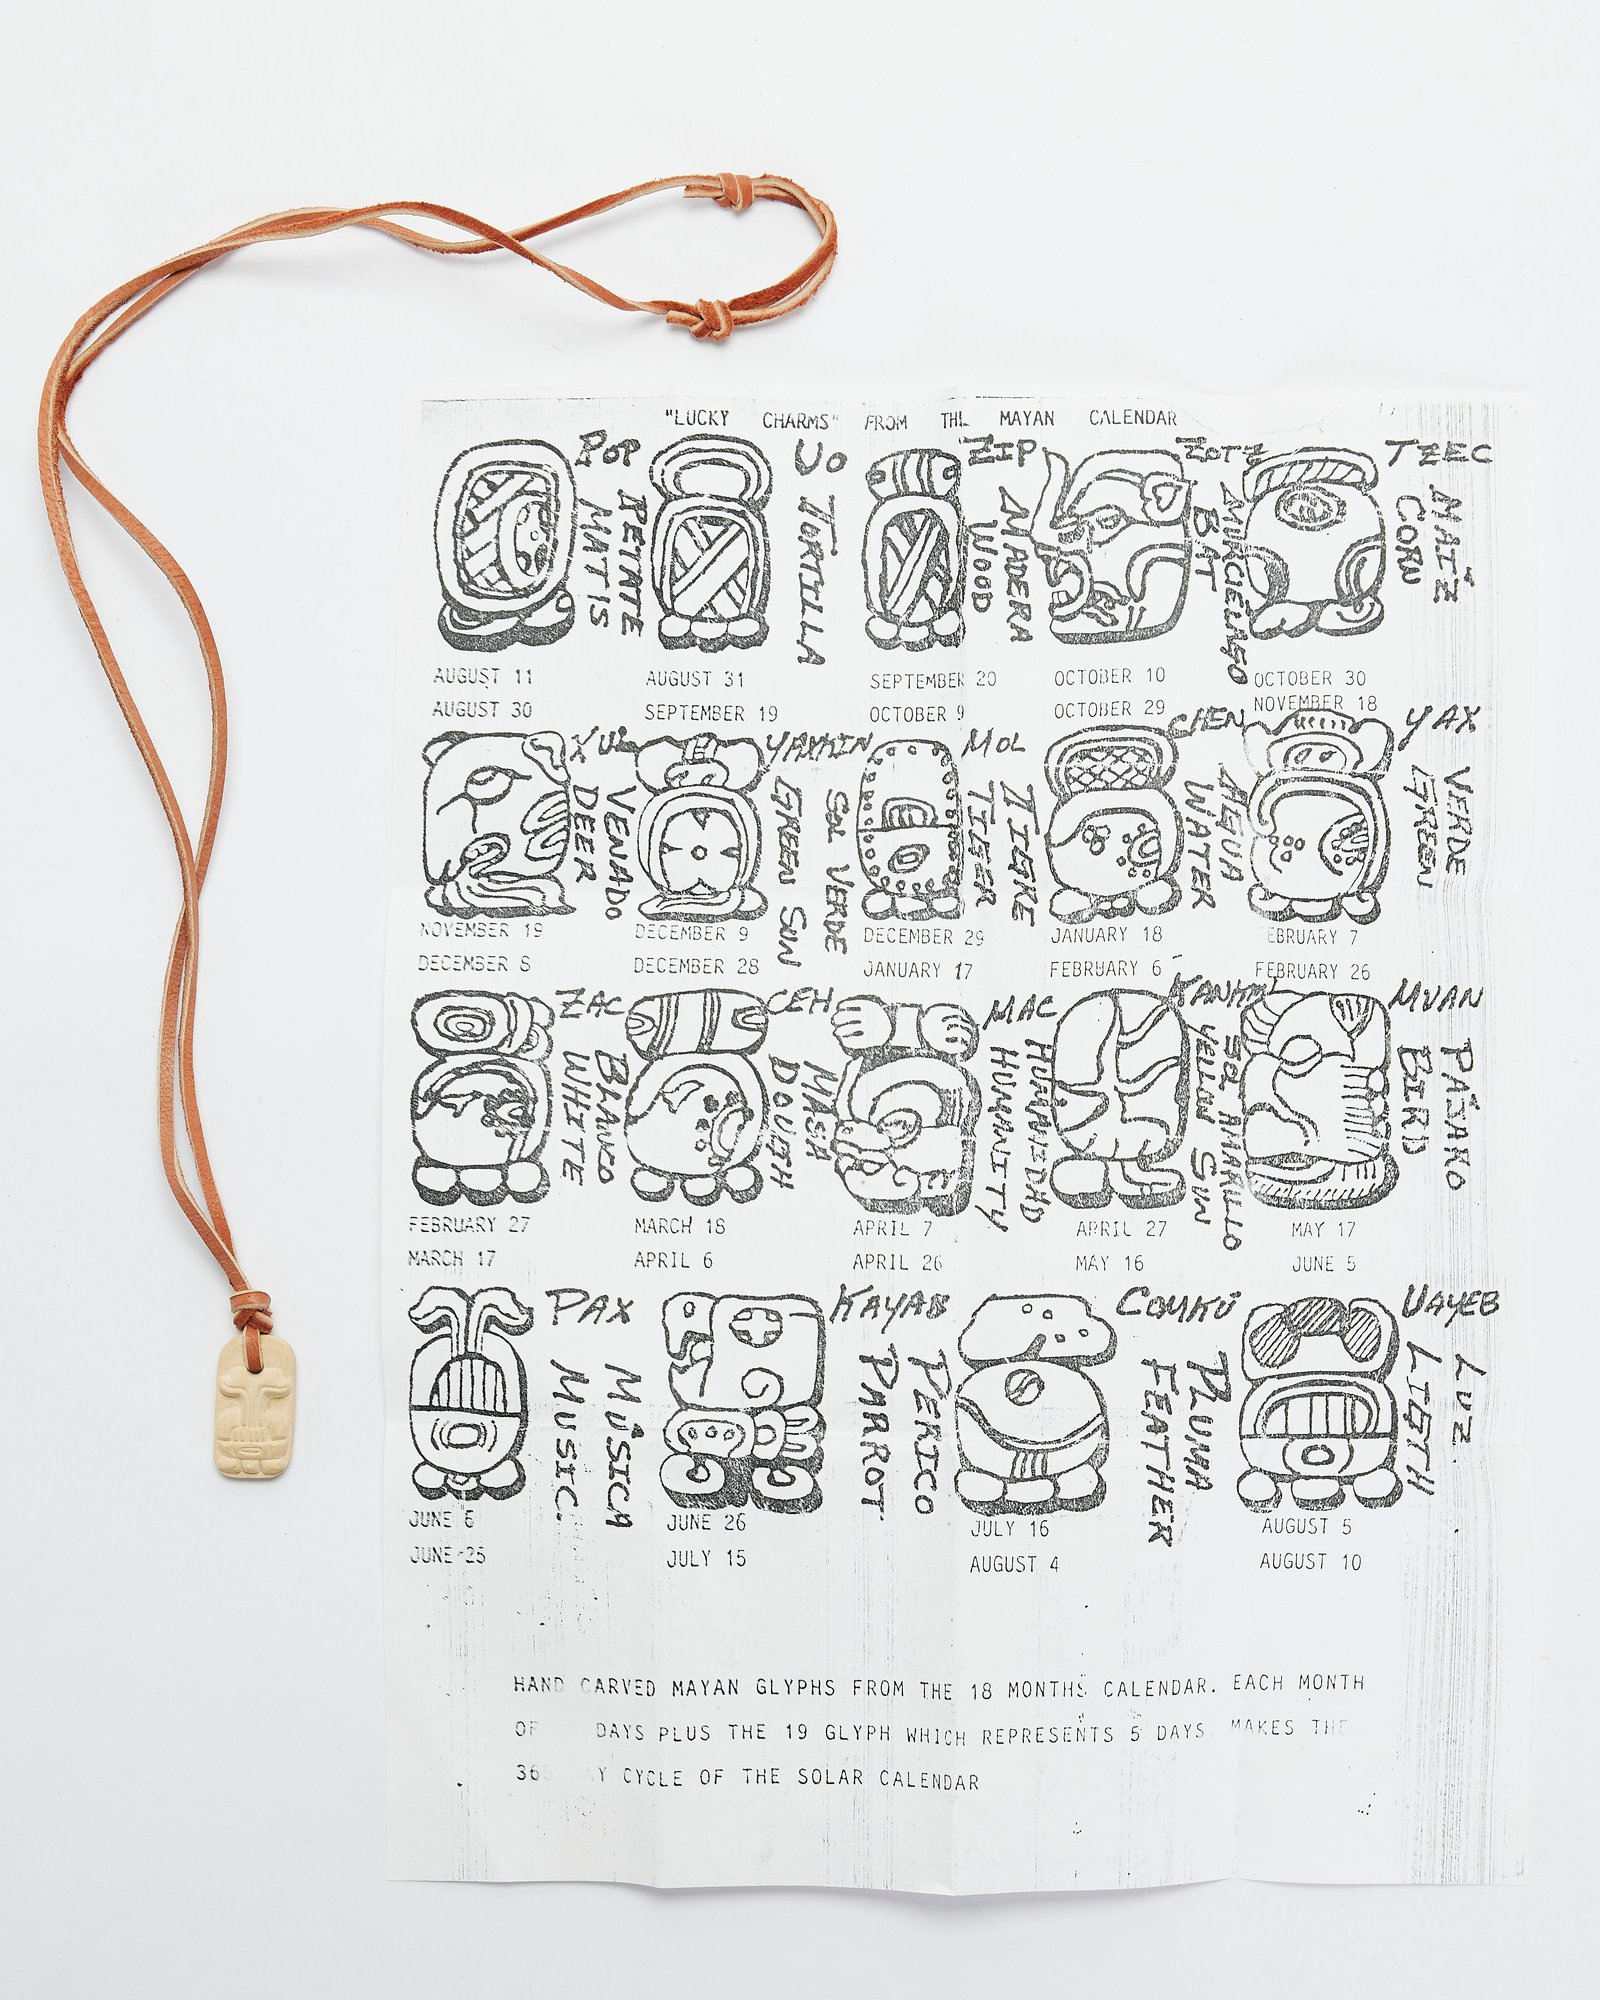 "LUCKY CHARMS" FROM THE MAYAN CALENDAR
POP
PETATE
MATIS
AUGUST 11
AUGUST 30
UO
TORTILLA
AUGUST 31
SEPTEMBER 19
ZIP
MADERA
WOOD
SEPTEMBER 20
OCTOBER 9
ZOTZ
MURCIÉLAGO
BAT
OCTOBER 10
OCTOBER 29
TZEC
MAIZ
CORN
OCTOBER 30
NOVEMBER 18
XUL
VENADO
DEER
NOVEMBER 19
DECEMBER 8
YAXKIN
SOL VERDE
GREEN SUN
DECEMBER 9
DECEMBER 28
MOL
TIGRE
TIGER
DECEMBER 29
JANUARY 17
CHEN
AGUA
WATER
JANUARY 18
FEBRUARY 6
YAX
VERDE
GREEN
EBRUARY 7
FEBRUARY 26
ZAC
BLANCO
WHITE
FEBRUARY 27
MARCH 17
CEH
MASA
DOUGTH
MARCH 18
APRIL 6
MAC
HUMANIDAD
HUMANITY
APRIL 7
APRIL 26
SOL AMARILLO
YELLOW SUN
APRIL 27
MAY 16
MUAN
PÁJARO
BIRD
MAY 17
JUNE 5
PAX
MÚSICA
MUSIC.
JUNE 6
JUNE 25
KAYAB
PERICO
PARROT
JUNE 26
JULY 15
CUMKÚ
PLUMA
FEATHER
JULY 16
AUGUST 4
UAYEB
LUZ
LIGTH
AUGUST 5
AUGUST 10
HAND CARVED MAYAN GLYPHS FROM THE 18 MONTHS CALENDAR. EACH MONTH
OF DAYS PLUS THE 19 GLYPH WHICH REPRESENTS 5 DAYS MAKES THE
CYCLE OF THE SOLAR CALENDAR